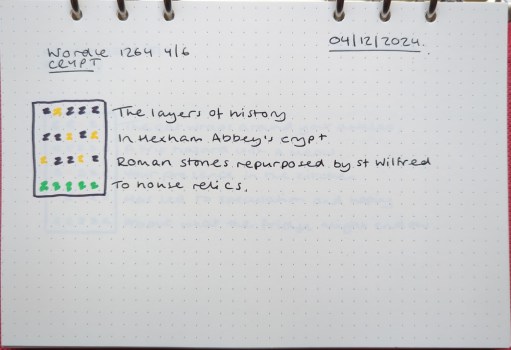 04/12/2024.
Wordle 1264 4/6
CRYPT
The layers of history
In Hexham Abbey's crypt
Roman stones repurposed by St Wilfred
To house relics.